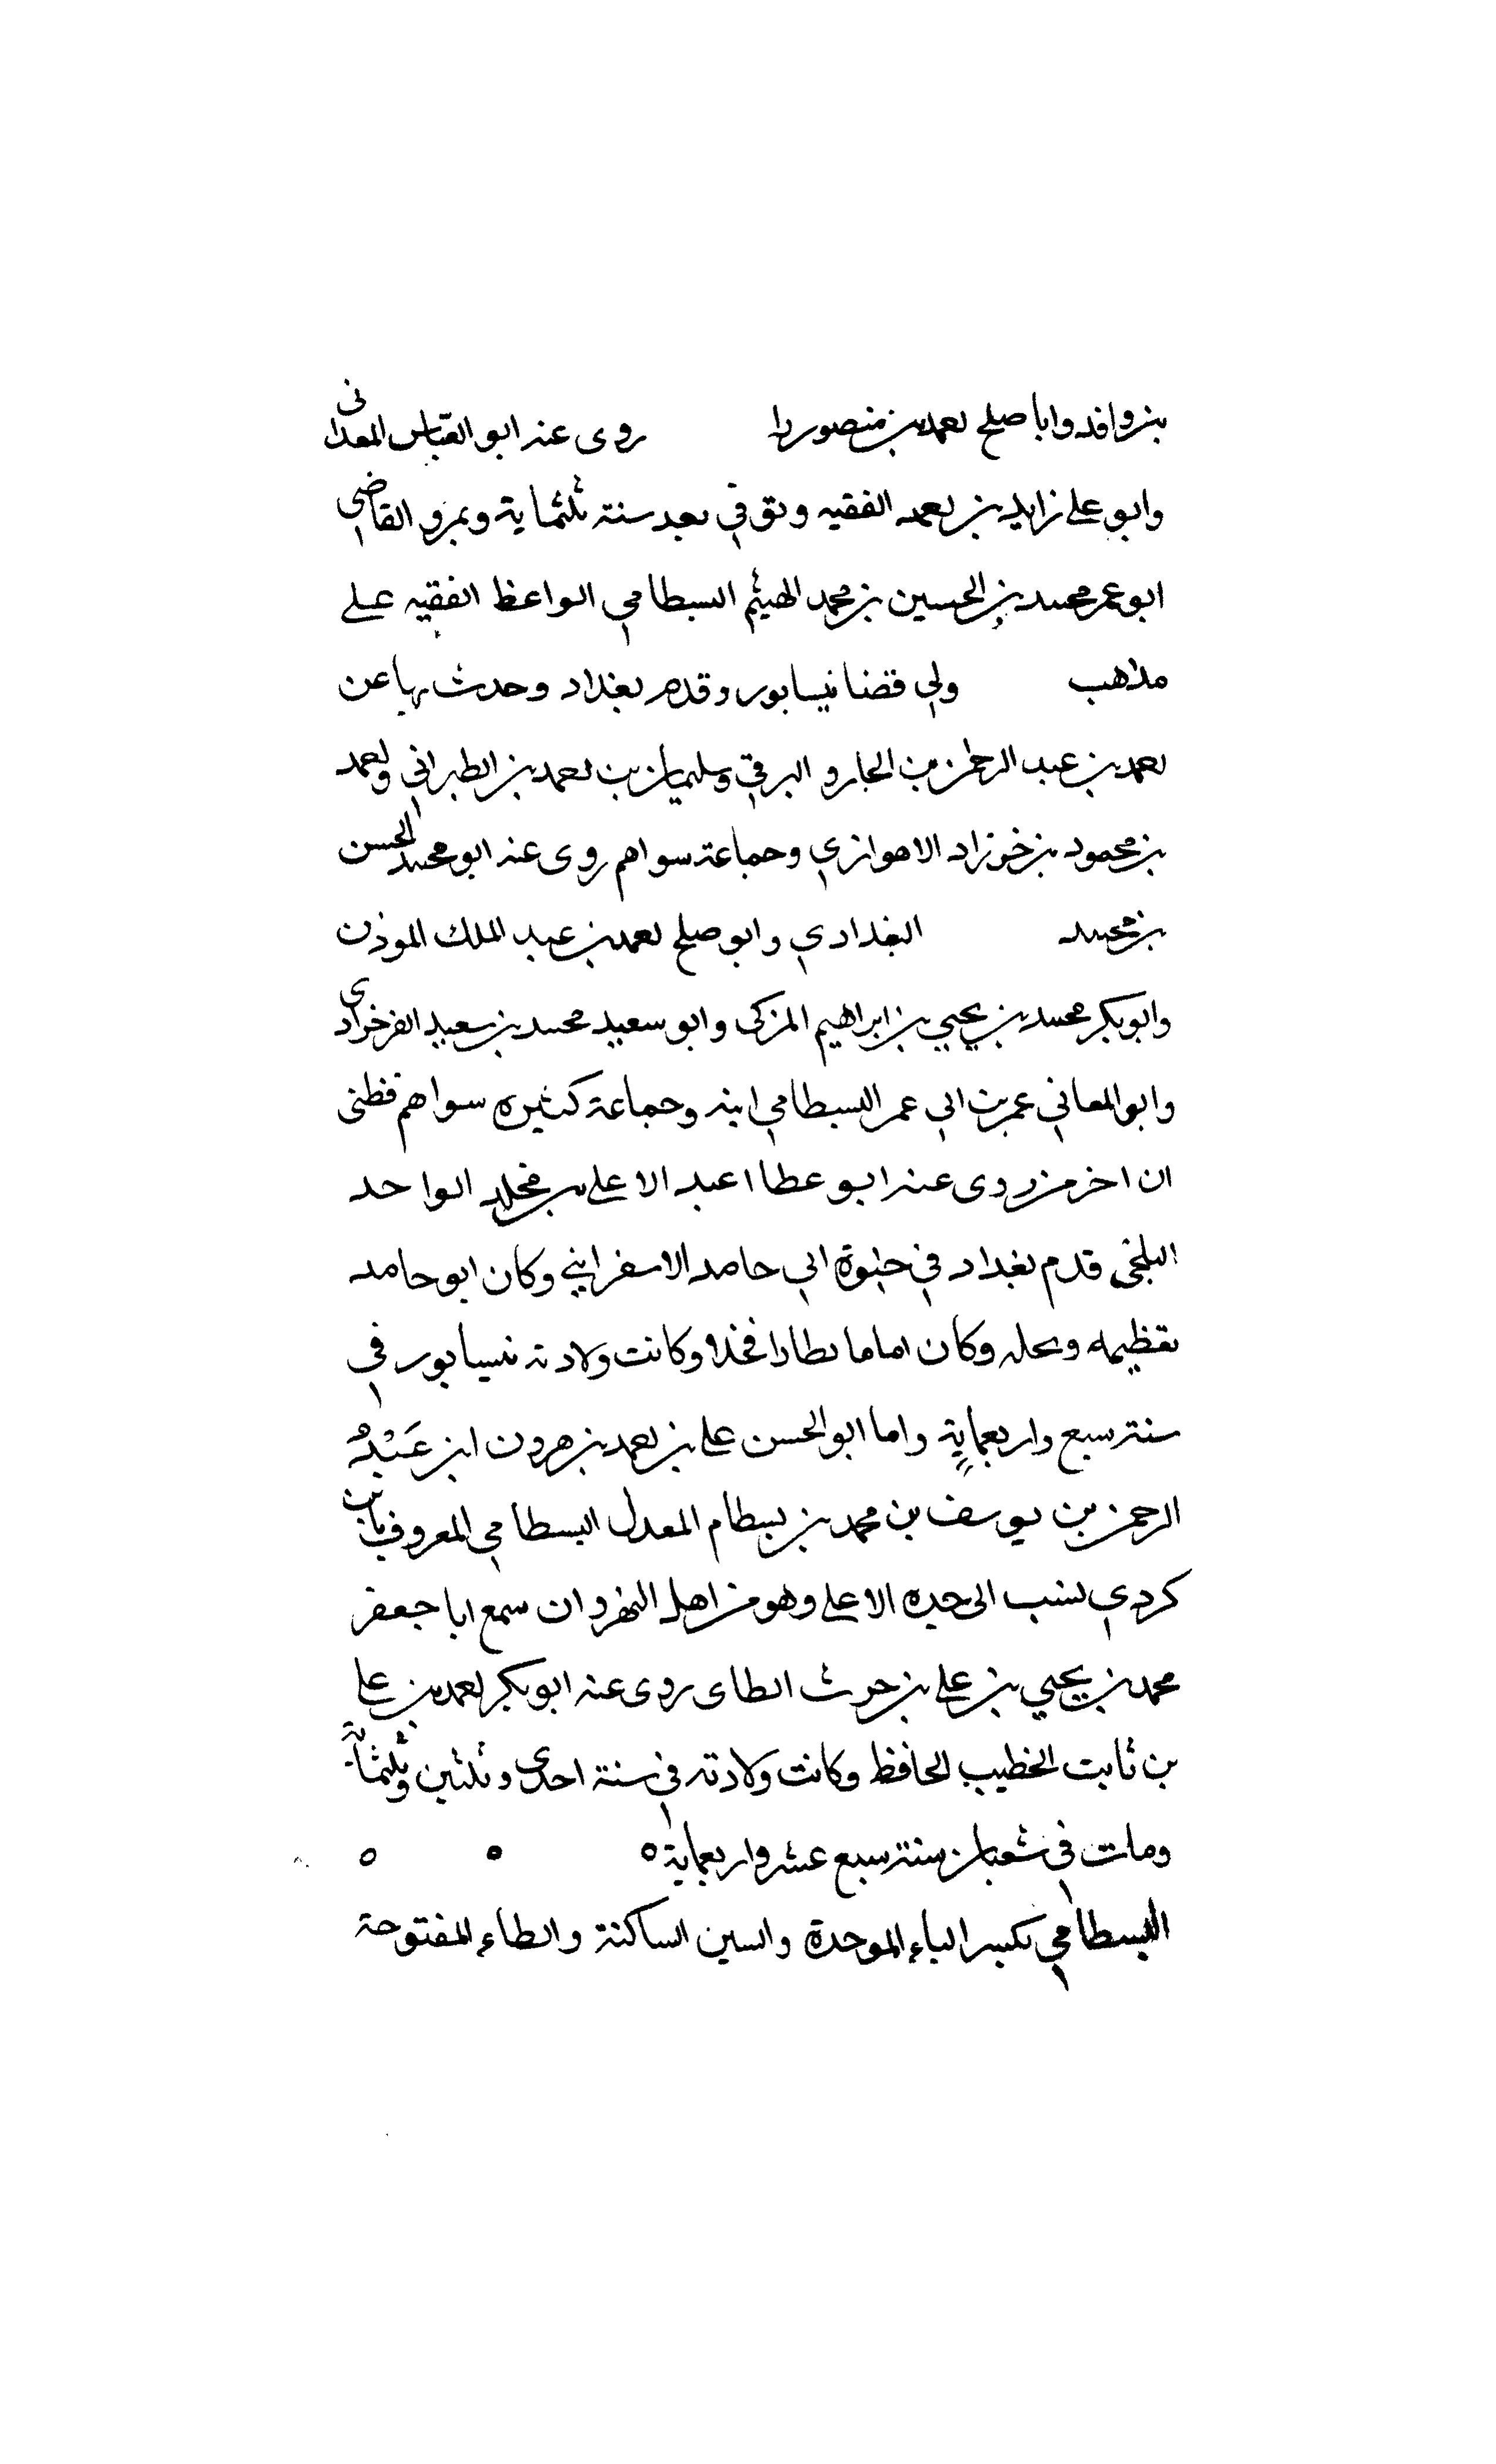 بن وافد وابا صلح احمد بن منصور را روى عنه ابو العباس المعدانى
وابو على زاهد بن احمد الفقيه وتوفي بعد سنة ثلثماية وبمرو القاضي
ابو عمر محمد بن الحسين بن محمد الهيثم البسطامي الواعظ الفقيه على
مذاهب ولي قضا نيسابور وقدم بغداد وحدث بها عن
احمد بن عبد الرحمن بن الجارو البرقي وسليمان بن احمد بن الطبراني واحمد
بن محمود بن خوزاد الاهوازي وجماعة سواهم روى عنه ابو محمد الحسن
بن محمد البغدادي وابو صلح احمد بن عبد الملك الموذن
وابو بكر محمد بن يحيي بن ابراهيم المزكى وابو سعيد محمد بن سعيد الفرخزادى
وابو المعاني عمر بن ابي عمر البسطامي ابنه وجماعة كثيره سواهم فظنى
ان اخر من روى عنه ابو عطاا عبد الاعلى بن مخلد الواحد
البلخى قدم بغداد في حيوة ابي حامد الاسفرايني وكان ابو حامد
يعظيمه ويجله وكان اماما نظارا فخذا وكانت ولادته نيسابور في
سنة سبع واربعماية واما ابو الحسن على بن احمد بن هرون ابن عبده
الرحمن بن يوسف بن محمد بن بسطام المعدل البسطامي المعروف بابن
كردي نسب الى جده الاعلى وهو من اهل النهروان سمع ابا جعفر
محمد بن يحيي بن على بن حرث الطاى روى عنه ابو بكر احمد بن على
بن ثابت الخطيب الحافظ وكانت ولادته في سنة احدى وثلثين وثلثماية
ومات في شعبان سنة سبع عشر واربعماية ه ه ه
البسطامي بكسر الباء الموحدة والسين الساكنة والطاء المفتوحة